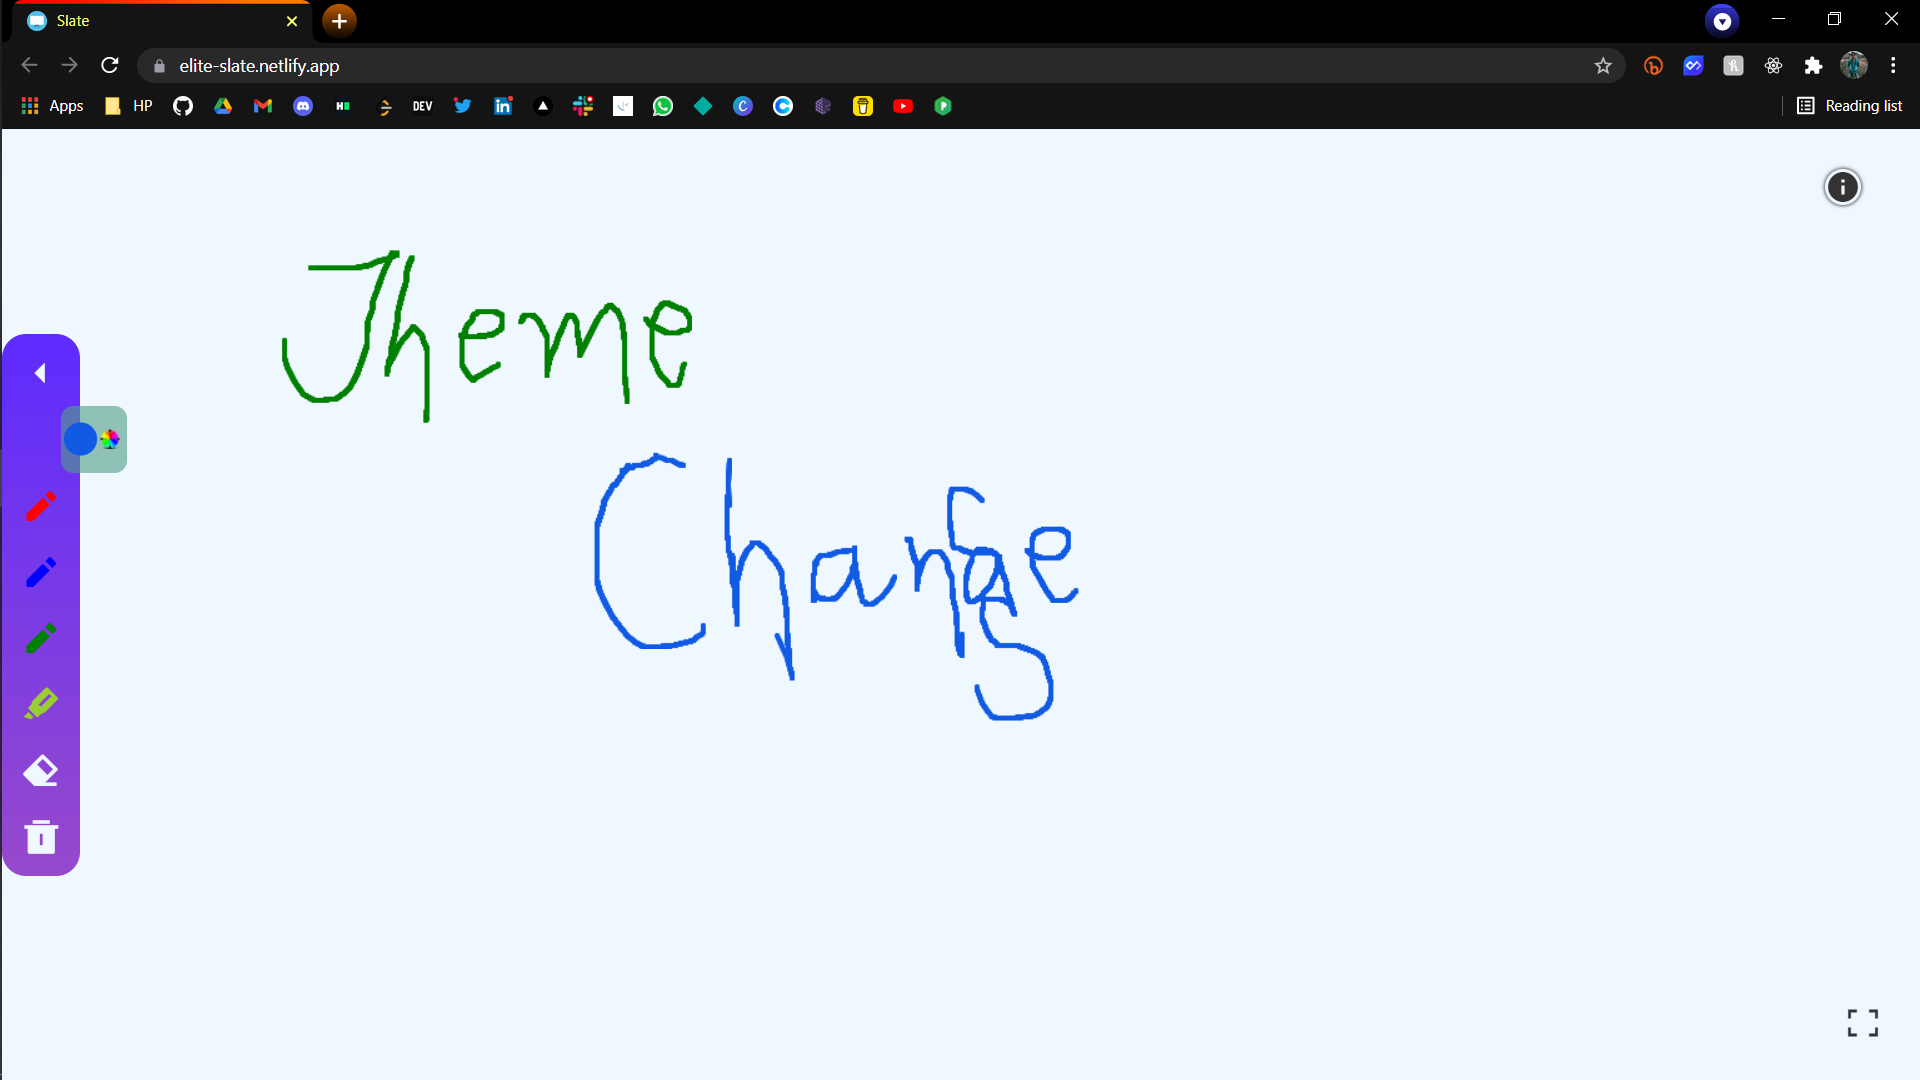 Slate
elite-slate.netlify.app
Apps
HP
DEV
Reading list
Theme
Change